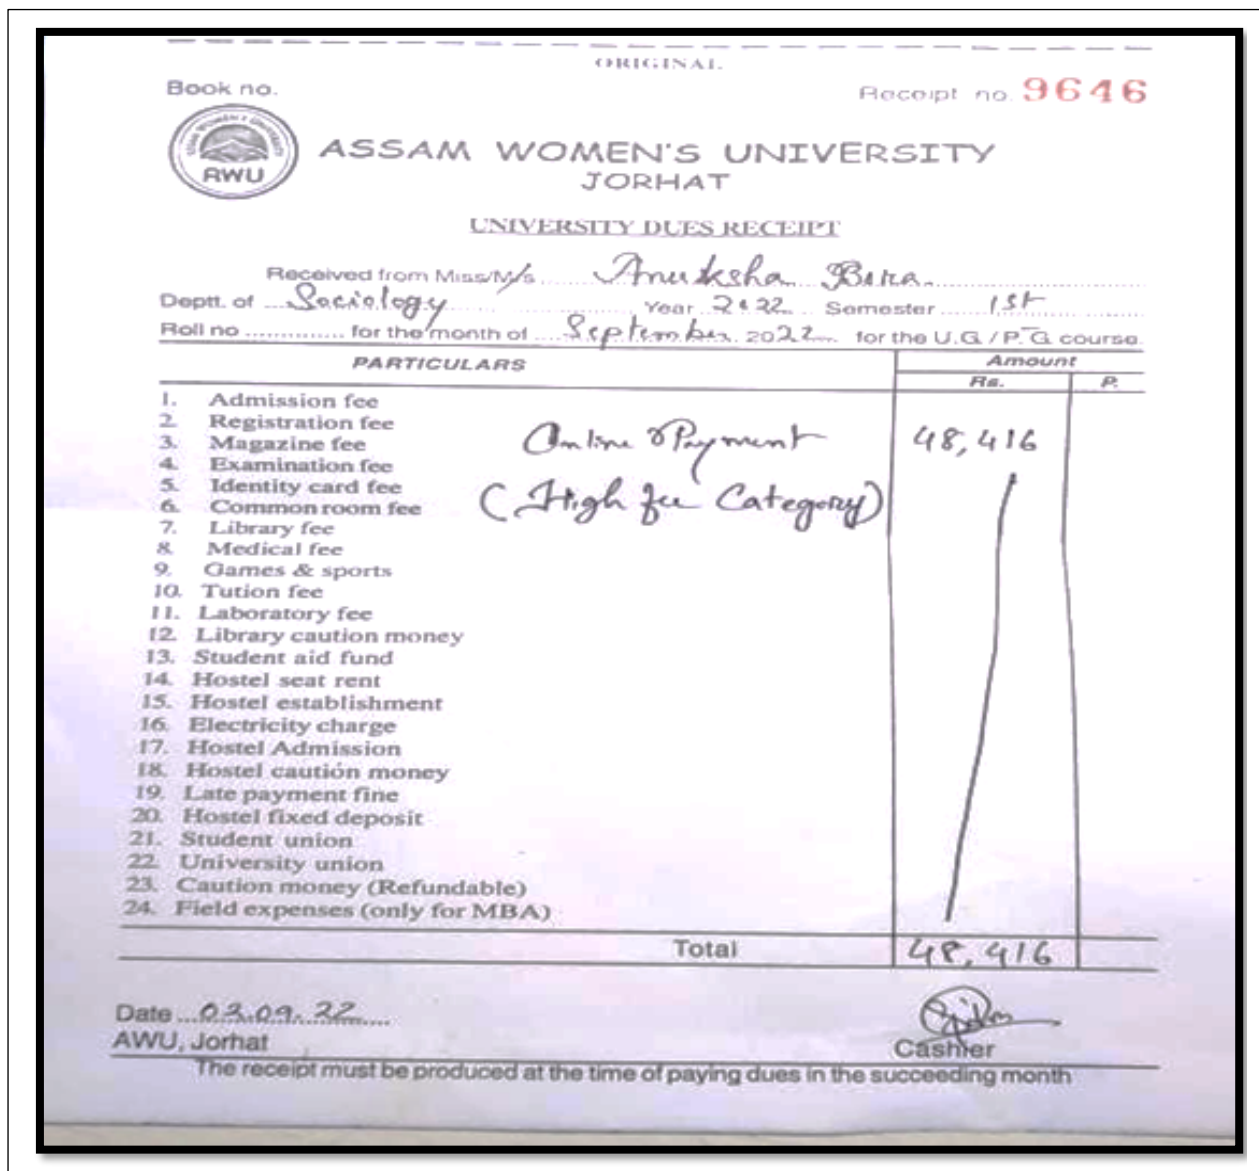 ORIGINAL
Book no.
Receipt no. 9646
ASSAM WOMEN'S UNIVERSITY
AWU
ASSAM WOMEN'S UNIVERSITY
JORHAT
UNIVERSITY DUES RECEIPT
Received from Miss/M/s ..... Anuksha Bora.
Deptt. of .... Sociology Year 2022 Semester ..... 1st
Roll no ............... for the month of .... September 2022 for the U.G. / P.G. course.
PARTICULARS Amount
Rs. P.
1. Admission fee
2. Registration fee
3. Magazine fee Online Payment 48,416
4. Examination fee
5. Identity card fee
6. Common room fee (High fee Category)
7. Library fee
8. Medical fee
9. Games & sports
10. Tution fee
11. Laboratory fee
12. Library caution money
13. Student aid fund
14. Hostel seat rent
15. Hostel establishment
16. Electricity charge
17. Hostel Admission
18. Hostel caution money
19. Late payment fine
20. Hostel fixed deposit
21. Student union
22. University union
23. Caution money (Refundable)
24. Field expenses (only for MBA)
Total 48,416
Date ... 03.09.22
AWU, Jorhat
Cashier
The receipt must be produced at the time of paying dues in the succeeding month